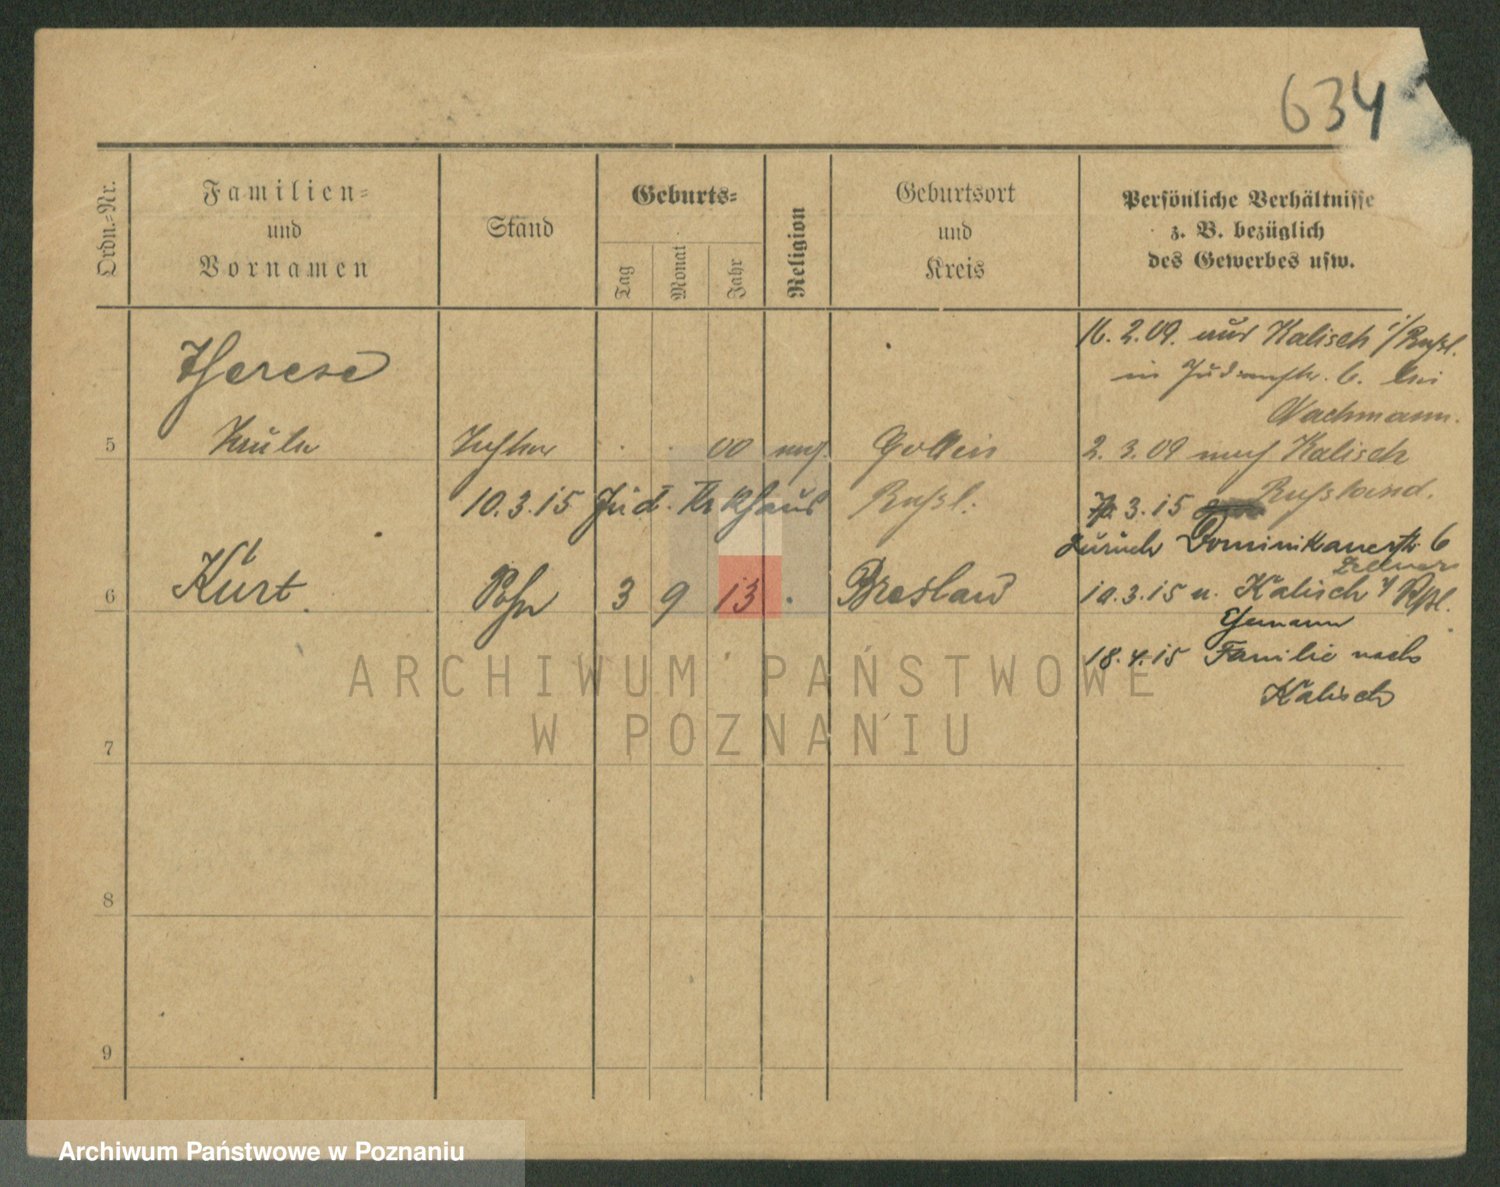 634
Ordn.-Nr.
Familien-
und
Vornamen
Stand
Geburts-
Tag
Monat
Jahr
Religion
Geburtsort
und
Kreis
Persönliche Verhältnisse
z. B. bezüglich
des Gewerbes usw.
Therese
5
00
10.3.15 Jüd. Krkhaus
Russl.
16. 2. 09. aus Kalisch i/Russl.
in Judenstr. 6. bei
Nachmann.
2. 3. 09 nach Kalisch
Russland.
3. 15
zurück Dominikanerstr 6
6
Kurt
Sohn
3
9
13
Breslau
10.3.15 u. Kalisch
Ehemann
18.4.15 Familie nach
Kalisch
7
8
9
ARCHIWUM PAŃSTWOWE
W POZNANIU
Archiwum Państwowe w Poznaniu